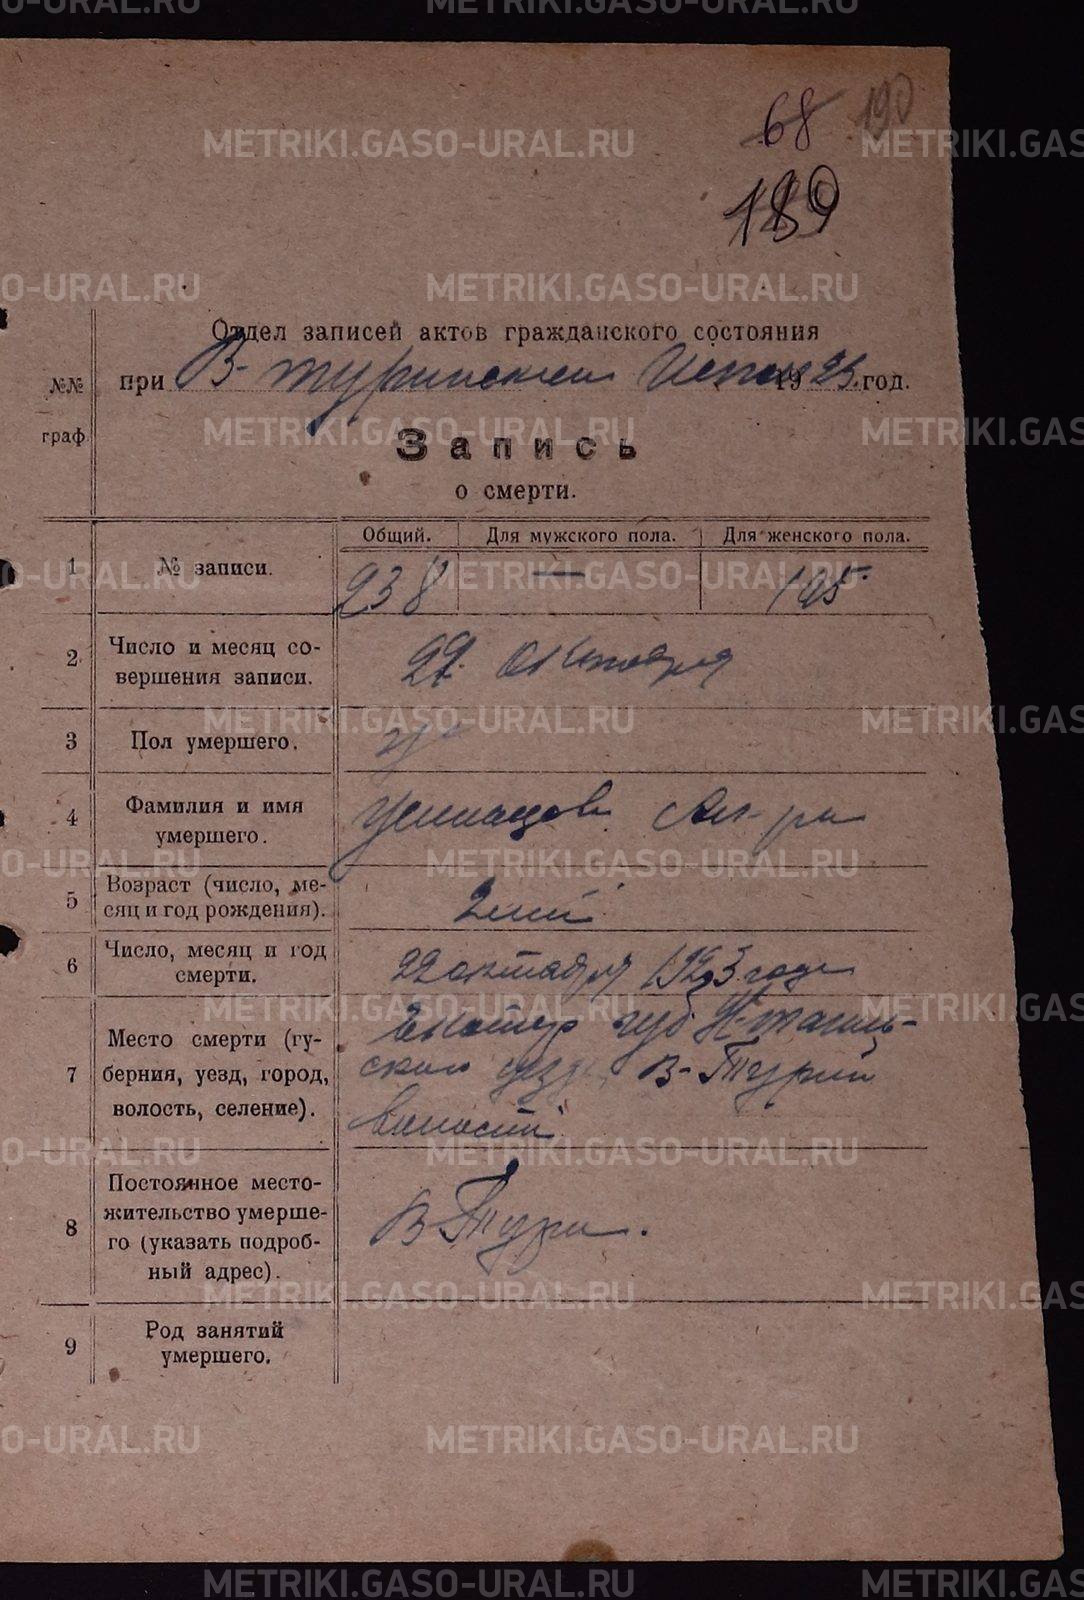 68 190
189
Отдел записей актов гражданского состояния
№№ граф.
при В-Туринском Испол 1923 год.
Запись
о смерти.
Общий. Для мужского пола. Для женского пола.
1 № записи. 238 — 105
2 Число и месяц со-
вершения записи. 22 октября
3 Пол умершего.
4 Фамилия и имя
умершего.
5 Возраст (число, ме-
сяц и год рождения).
6 Число, месяц и год
смерти. 22 октября 1923 года
7 Место смерти (гу-
берния, уезд, город,
волость, селение).
Екатер губ Н-Тагиль-
ском уезд В-Турин
волости
8 Постоянное место-
жительство умерше-
го (указать подроб-
ный адрес). В-Тура.
9 Род занятий
умершего.
METRIKI.GASO-URAL.RU